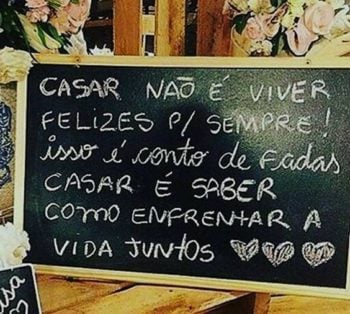 CASAR NÃO É VIVER
FELIZES P/ SEMPRE!
isso é conto de fadas
CASAR É SABER
COMO ENFRENTAR A
VIDA JUNTOS ♡♡♡